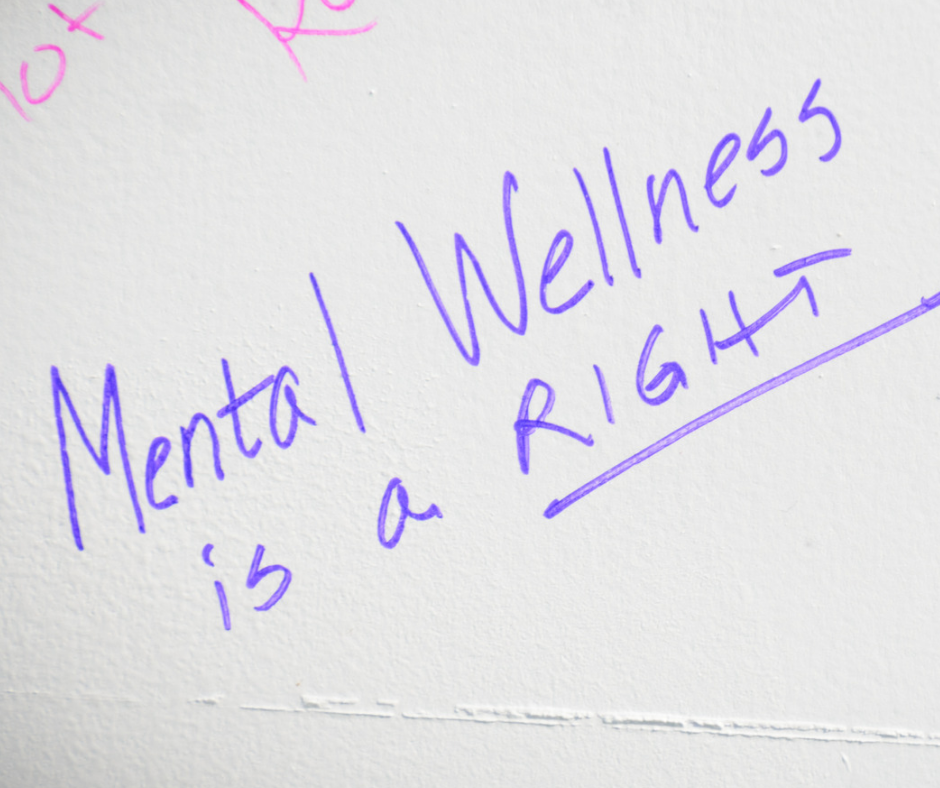 Mental Wellness
is a RIGHT